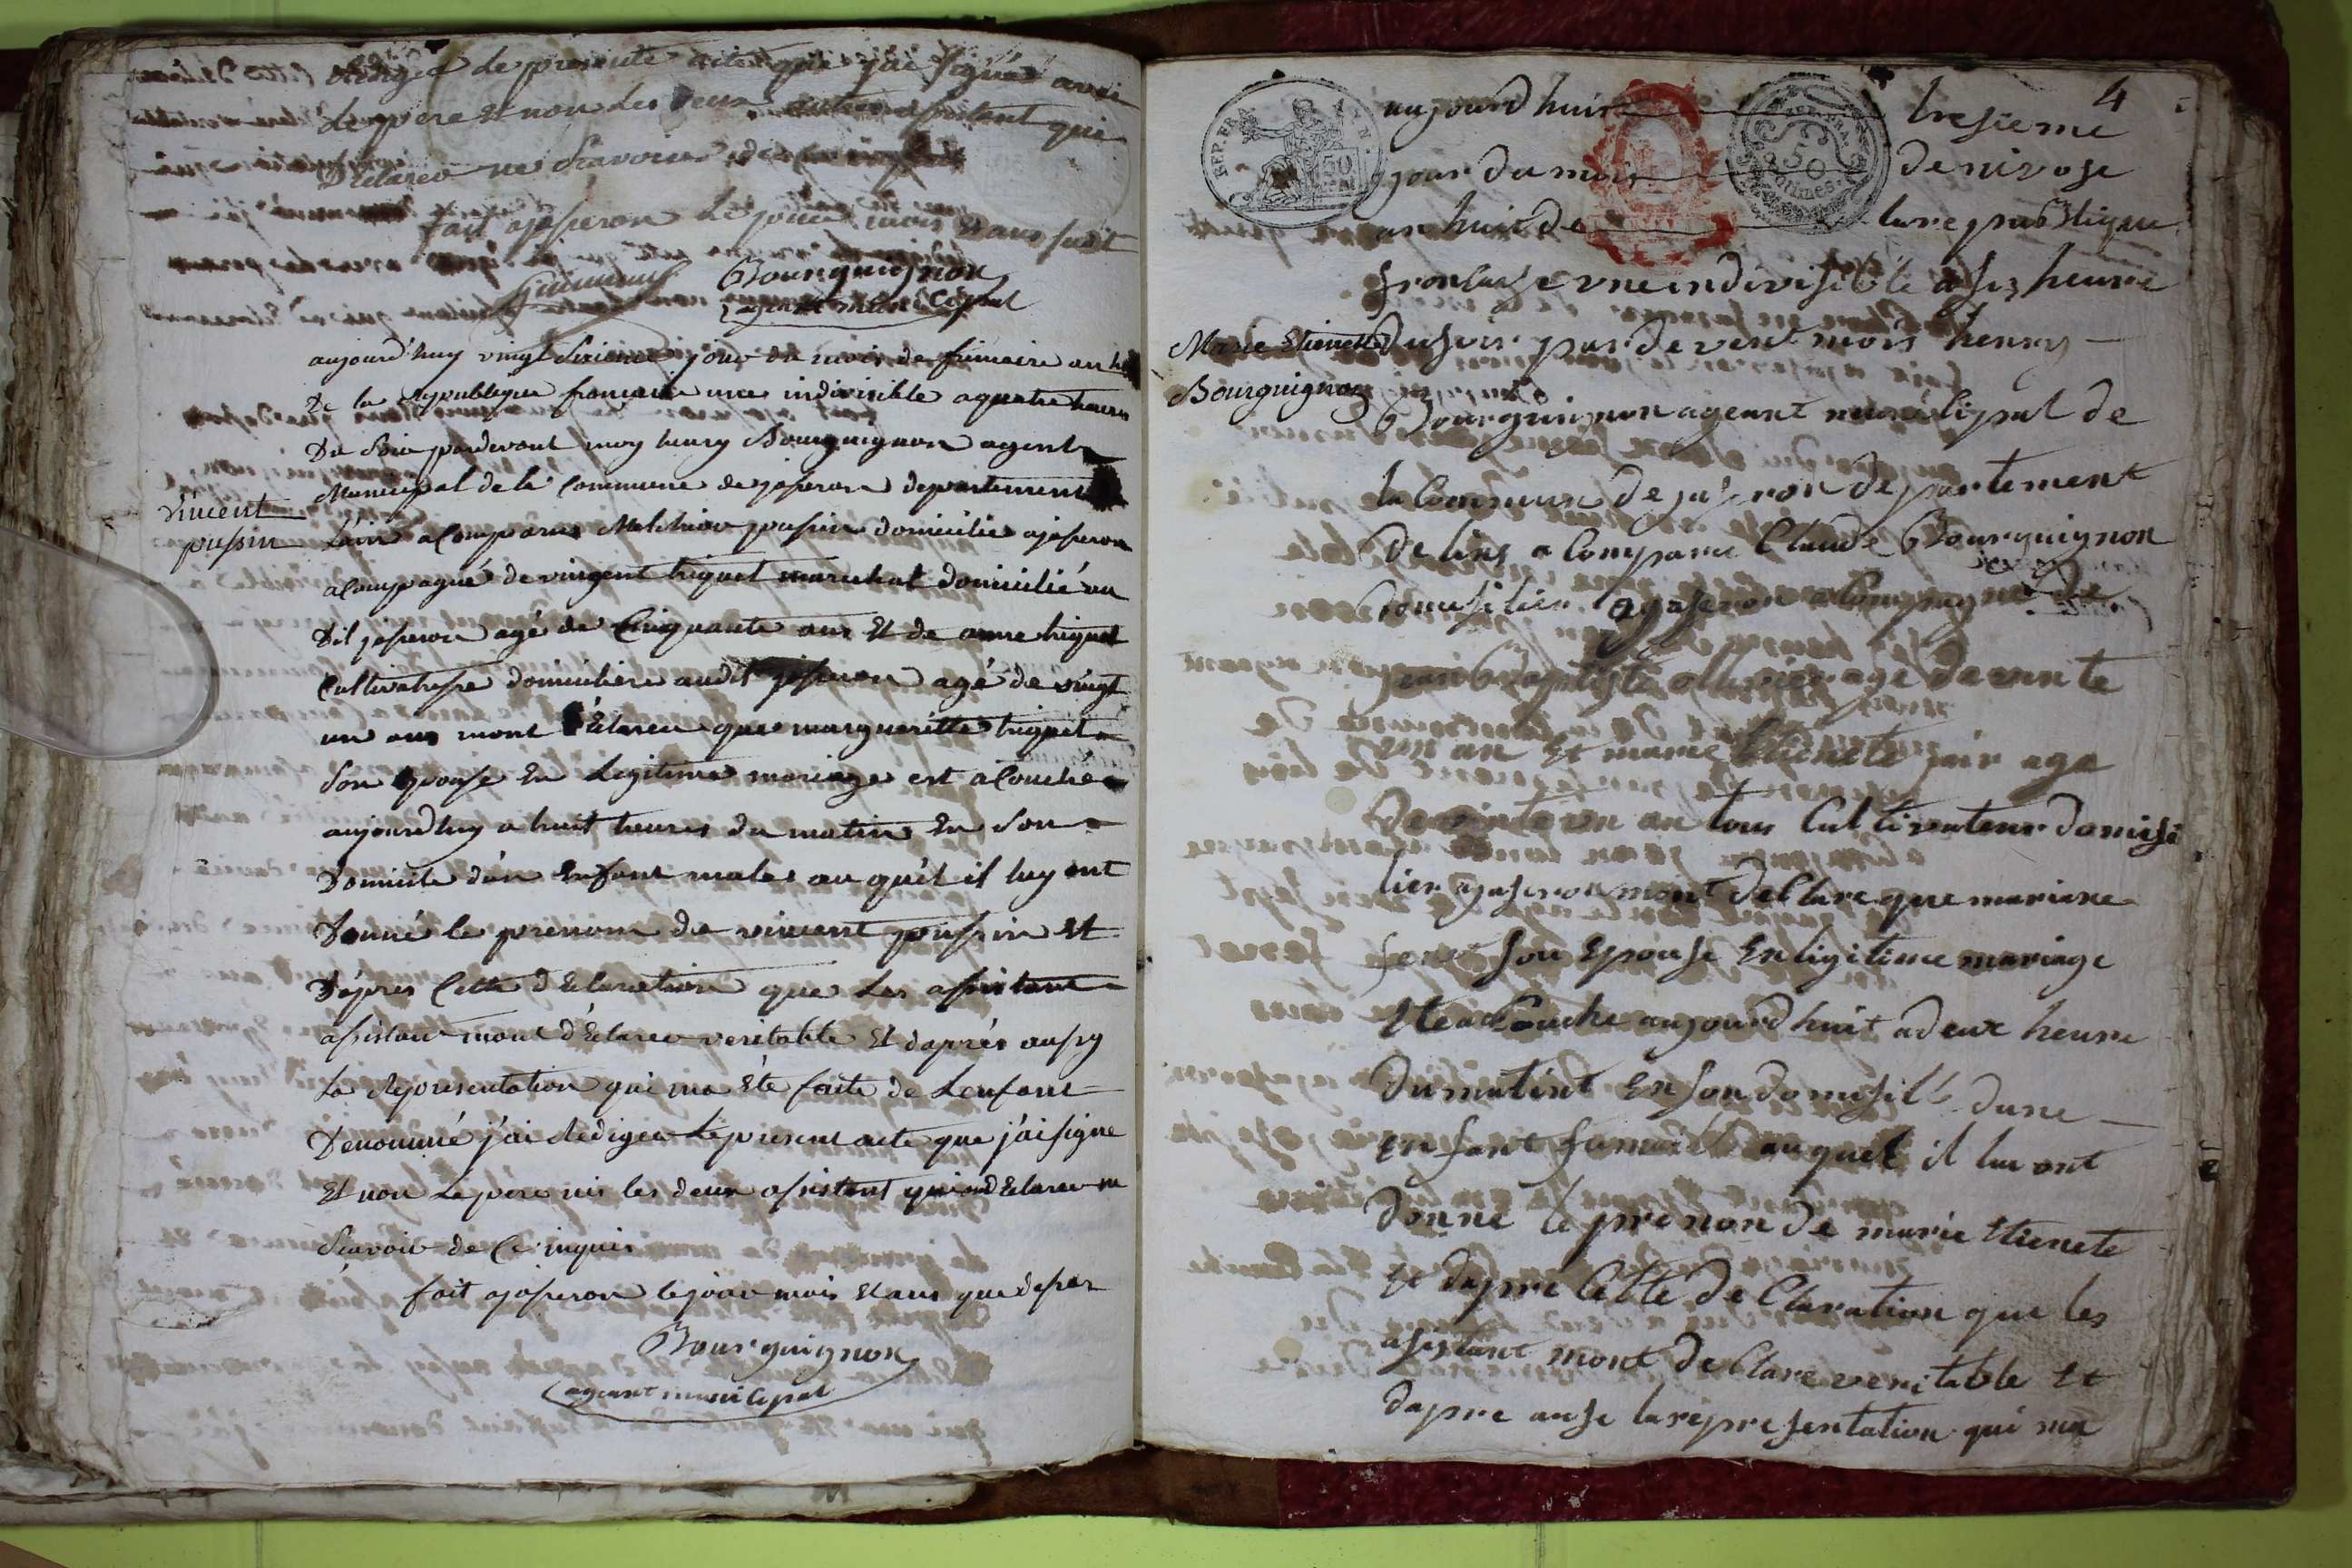 Redigée le presente acte que j'ai signée avec
Le pere et non les deux autres assistant qui
Déclarer ne Scavoire de ce
fait a joseron le jour mois et ans susdt
Bourguignon
agent municipal
aujourd'huy vingt Sixieme jour du mois de frimaire an
De la Republique francaise une indivisible a quatre heures
Du Soir pardevant moy henry Bourguignon agent
Municipal de la Commune de joseron departement
vincent
pussin
Lain a Comparus Melchior pussin domicilié a joseron
acompagné de vingent triquet marechal domicilié au
Dit joseron agé de Cinquante ans Et de anne triquet
Cultivatrisse domiciliere audit joseron agé de vingt
un ans mont déclarer que margueritte triquet
Son Epouse En Legitime mariage est acouchée
aujourdhuy a huit heures du matin En Son
Domicile d'un Enfant males auquel il luy ont
Donné le prenom de vincent pussin Et
D'apres Cette déclaration que les assistant
assistant mont déclarer veritable Et daprés aussy
La Representation qui ma Eté faite de Lenfant
Denommé j'ai Rediger Le present acte que j'ai signe
Et non Le pere nis les deux assistant qui ont déclarer ne
Scavoir de Ce inquis
fait a joseron le jour mois Et ans que desser
Bourguignon
agent municipal
4
REP. FRA.
50
50
aujourd huit tresieme
jour du mois de nivose
an huit de la republique
fransaise une indivisible a siz heure
Marie Etienette
Bourguignon
du soir par devent mois henry
Bourguignon ageant municipal de
la Commune de jaseron departement
de lins a Comparu Claude Bourguignon
domisilier a jaseron a Compagne de
jean Baptiste age de trente
un an Et marie Etienete age
de un an tous Cultivateur domisi
lier a jaseron mont declare que mariane
son Epouse En ligitime mariage
Ete acouche aujourd huit a deux heure
du matint En son domisille dune
Enfant famielle auquel il lui ont
donne le prenon de marie Etienete
Et dapre Cette declaration que les
asistant mont declare veritable Et
dapre ause la representation qui ma